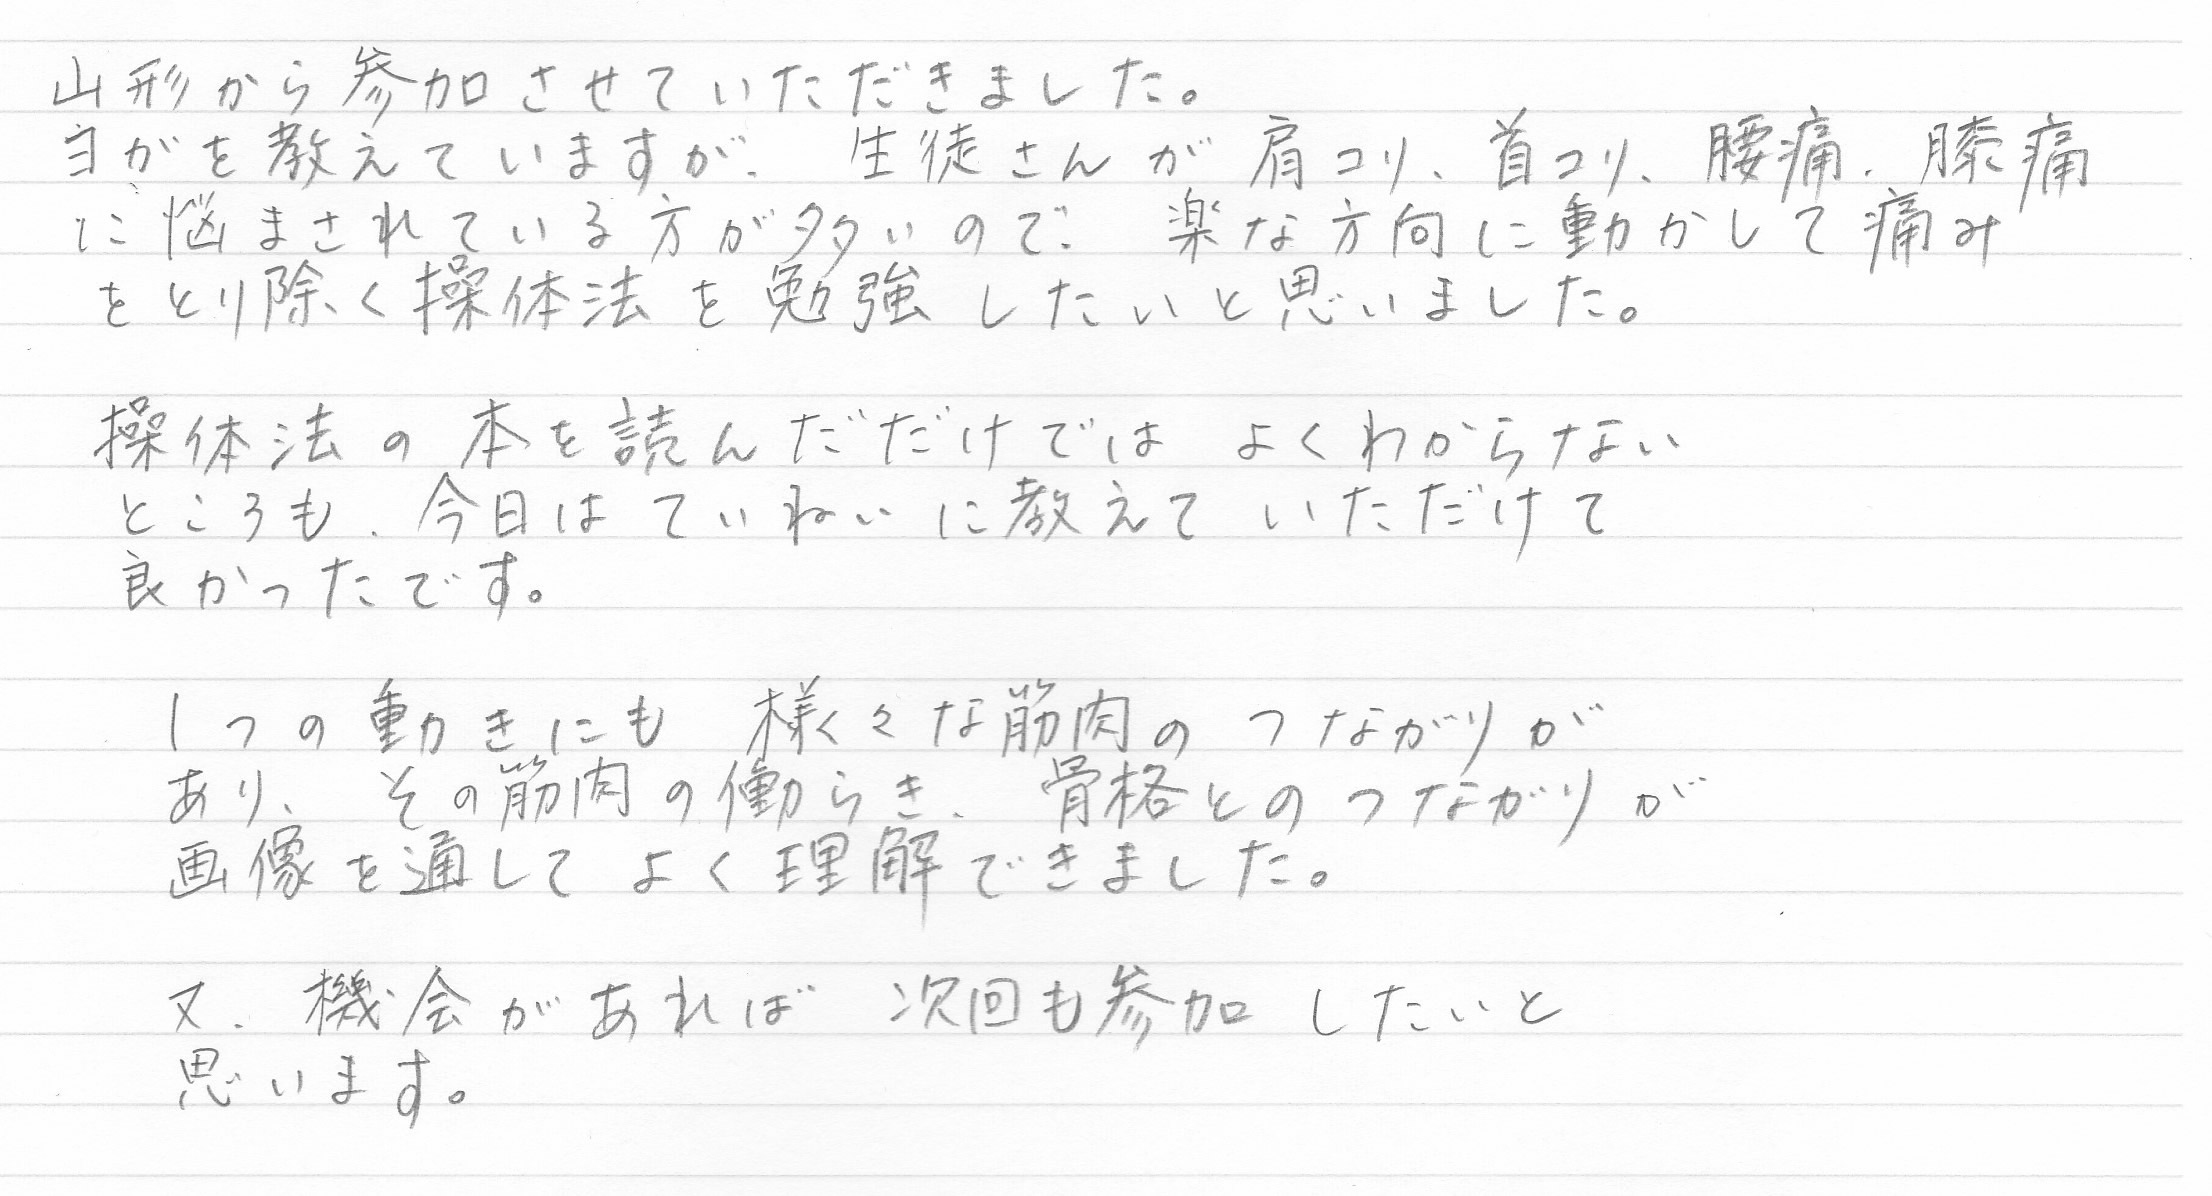 山形から参加させていただきました。
ヨガを教えていますが、生徒さんが肩コリ、首コリ、腰痛、膝痛
に悩まされている方が多いので、楽な方向に動かして痛み
をとり除く操体法を勉強したいと思いました。
操体法の本を読んだだけではよくわからない
ところも、今日はていねいに教えていただけて
良かったです。
1つの動きにも様々な筋肉のつながりが
あり、その筋肉の働らき、骨格とのつながりが
画像を通してよく理解できました。
又、機会があれば次回も参加したいと
思います。